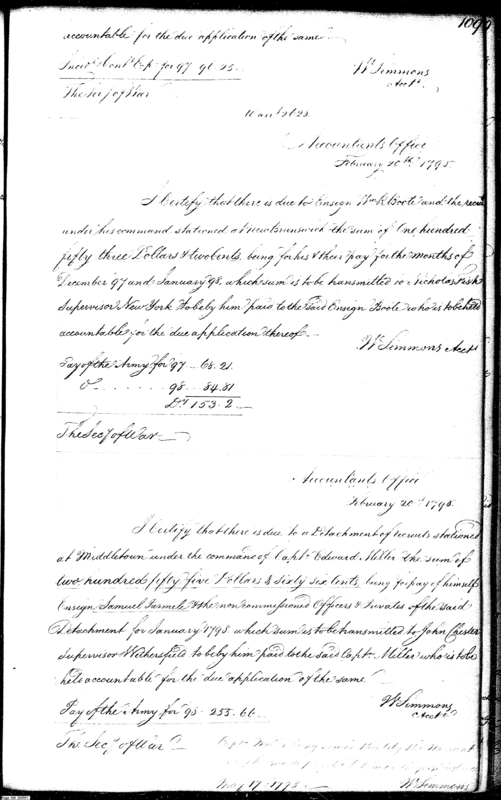 109
accountable for the due application of the same
for 97 96.25
Wm Simmons
Acct.
The Secy of War
Accountants Office
February 20th 1798.
I Certify that there is due to Ensign Wm R Boote and the
under his command stationed at New Brunswick the sum of One hundred
fifty three Dollars & two Cents, being for his & their pay for the months of
December 97 and January 98, which sum is to be transmitted to Nicholas Fish
Supervisor New York to be by him paid to the said Ensign Boote who is to be held
accountable for the due application thereof
Wm Simmons Acct.
Pay of the Army for 97 .. 68.21
Do . . . . . . 98 .. 84.81
Drs 153.2
The Secy of War
Accountants Office
February 20th 1798.
I Certify that there is due to a Detachment of recruits stationed
at Middletown under the command of Capt. Edward Miller the sum of
two hundred fifty five Dollars & Sixty six Cents, being for pay of himself
Ensign Samuel Parmele & the non commissioned Officers & Privates of the said
Detachment for January 1798 which sum is to be transmitted to John Chester
Supervisor Wethersfield to be by him paid to the said Capt. Miller who is to be
held accountable for the due application of the same
Wm Simmons
Acct.
Pay of the Army for 98 . 255.66
The Secy of War
May 17 1798
Wm Simmons